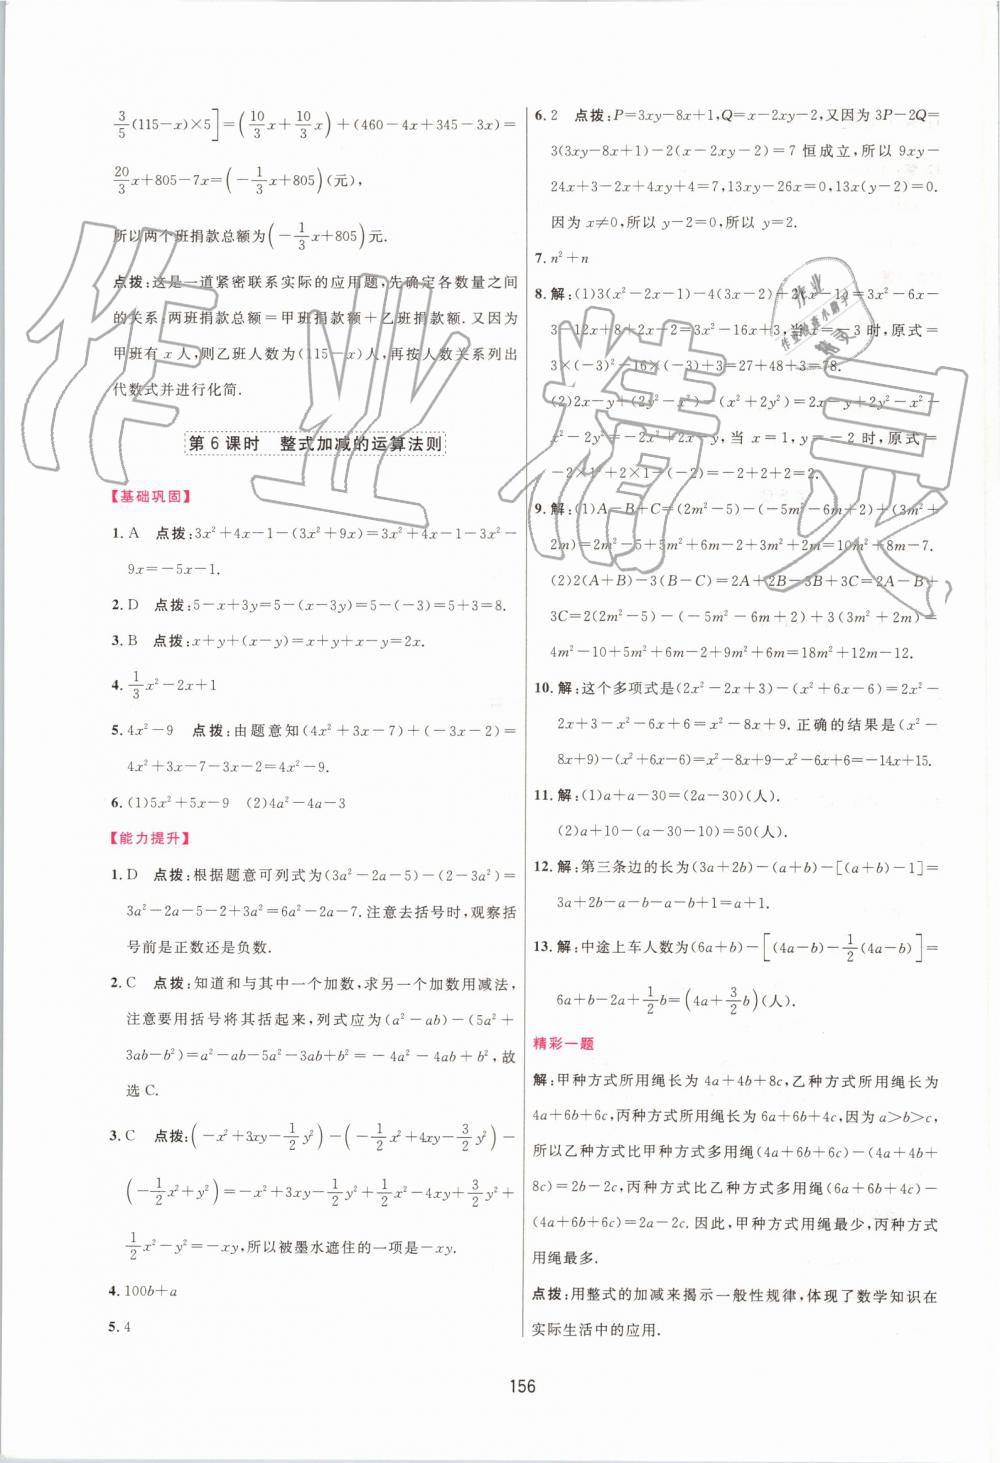 3/5(115-x)×5]=(10/3x+10/3x)+(460-4x+345-3x)=
20/3x+805-7x=(-1/3x+805)(元),
所以两个班捐款总额为(-1/3x+805)元.
点拨:这是一道紧密联系实际的应用题,先确定各数量之间
的关系:两班捐款总额=甲班捐款额+乙班捐款额.又因为
甲班有 x 人,则乙班人数为(115-x)人,再按人数关系列出
代数式并进行化简.
第6课时 整式加减的运算法则
【基础巩固】
1. A 点拨:3x²+4x-1-(3x²+9x)=3x²+4x-1-3x²-
9x=-5x-1.
2. D 点拨:5-x+3y=5-(x-3y)=5-(-3)=5+3=8.
3. B 点拨:x+y+(x-y)=x+y+x-y=2x.
4. 1/3x²-2x+1
5. 4x²-9 点拨:由题意知(4x²+3x-7)+(-3x-2)=
4x²+3x-7-3x-2=4x²-9.
6. (1)5x²+5x-9 (2)4a²-4a-3
【能力提升】
1. D 点拨:根据题意可列式为(3a²-2a-5)-(2-3a²)=
3a²-2a-5-2+3a²=6a²-2a-7.注意去括号时,观察括
号前是正数还是负数.
2. C 点拨:知道和与其中一个加数,求另一个加数用减法,
注意要用括号将其括起来,列式应为(a²-ab)-(5a²+
3ab-b²)=a²-ab-5a²-3ab+b²=-4a²-4ab+b²,故
选 C.
3. C 点拨:(-x²+3xy-1/2y²)-(-1/2x²+4xy-3/2y²)-
(-1/2x²+y²)=-x²+3xy-1/2y²+1/2x²-4xy+3/2y²+
1/2x²-y²=-xy,所以被墨水遮住的一项是-xy.
4. 100b+a
5. 4
6. 2 点拨:P=3xy-8x+1,Q=x-2xy-2,又因为 3P-2Q=
3(3xy-8x+1)-2(x-2xy-2)=7 恒成立,所以 9xy-
24x+3-2x+4xy+4=7,13xy-26x=0,13x(y-2)=0.
因为 x≠0,所以 y-2=0,所以 y=2.
7. n²+n
8. 解:(1)3(x²-2x-1)-4(3x-2)+2(x-1)=3x²-6x-
3-12x+8+2x-2=3x²-16x+3,当 x=-3 时,原式=
3×(-3)²-16×(-3)+3=27+48+3=78.
(2)2x-y+(2y²-x²)-(x²+2y²)=2x-y+2y²-x²-
x²-2y²=-2x²+2x-y,当 x=-1,y=-2 时,原式=
-2×1²+2×1-(-2)=-2+2+2=2.
9. 解:(1)A-B+C=(2m²-5)-(-5m²-6m+2)+(3m²+
2m)=2m²-5+5m²+6m-2+3m²+2m=10m²+8m-7.
(2)2(A+B)-3(B-C)=2A+2B-3B+3C=2A-B+
3C=2(2m²-5)-(-5m²-6m+2)+3(3m²+2m)=
4m²-10+5m²+6m-2+9m²+6m=18m²+12m-12.
10. 解:这个多项式是(2x²-2x+3)-(x²+6x-6)=2x²-
2x+3-x²-6x+6=x²-8x+9.正确的结果是(x²-
8x+9)-(x²+6x-6)=x²-8x+9-x²-6x+6=-14x+15.
11. 解:(1)a+a-30=(2a-30)(人).
(2)a+10-(a-30-10)=50(人).
12. 解:第三条边的长为(3a+2b)-(a+b)-[(a+b)-1]=
3a+2b-a-b-a-b+1=a+1.
13. 解:中途上车人数为(6a+b)-[(4a-b)-1/2(4a-b)]=
6a+b-2a+1/2b=(4a+3/2b)(人).
精彩一题
解:甲种方式所用绳长为 4a+4b+8c,乙种方式所用绳长为
4a+6b+6c,丙种方式所用绳长为 6a+6b+4c,因为 a>b>c,
所以乙种方式比甲种方式多用绳(4a+6b+6c)-(4a+4b+
8c)=2b-2c,丙种方式比乙种方式多用绳(6a+6b+4c)-
(4a+6b+6c)=2a-2c.因此,甲种方式用绳最少,丙种方式
用绳最多.
点拨:用整式的加减来揭示一般性规律,体现了数学知识在
实际生活中的应用.
156
作业精灵